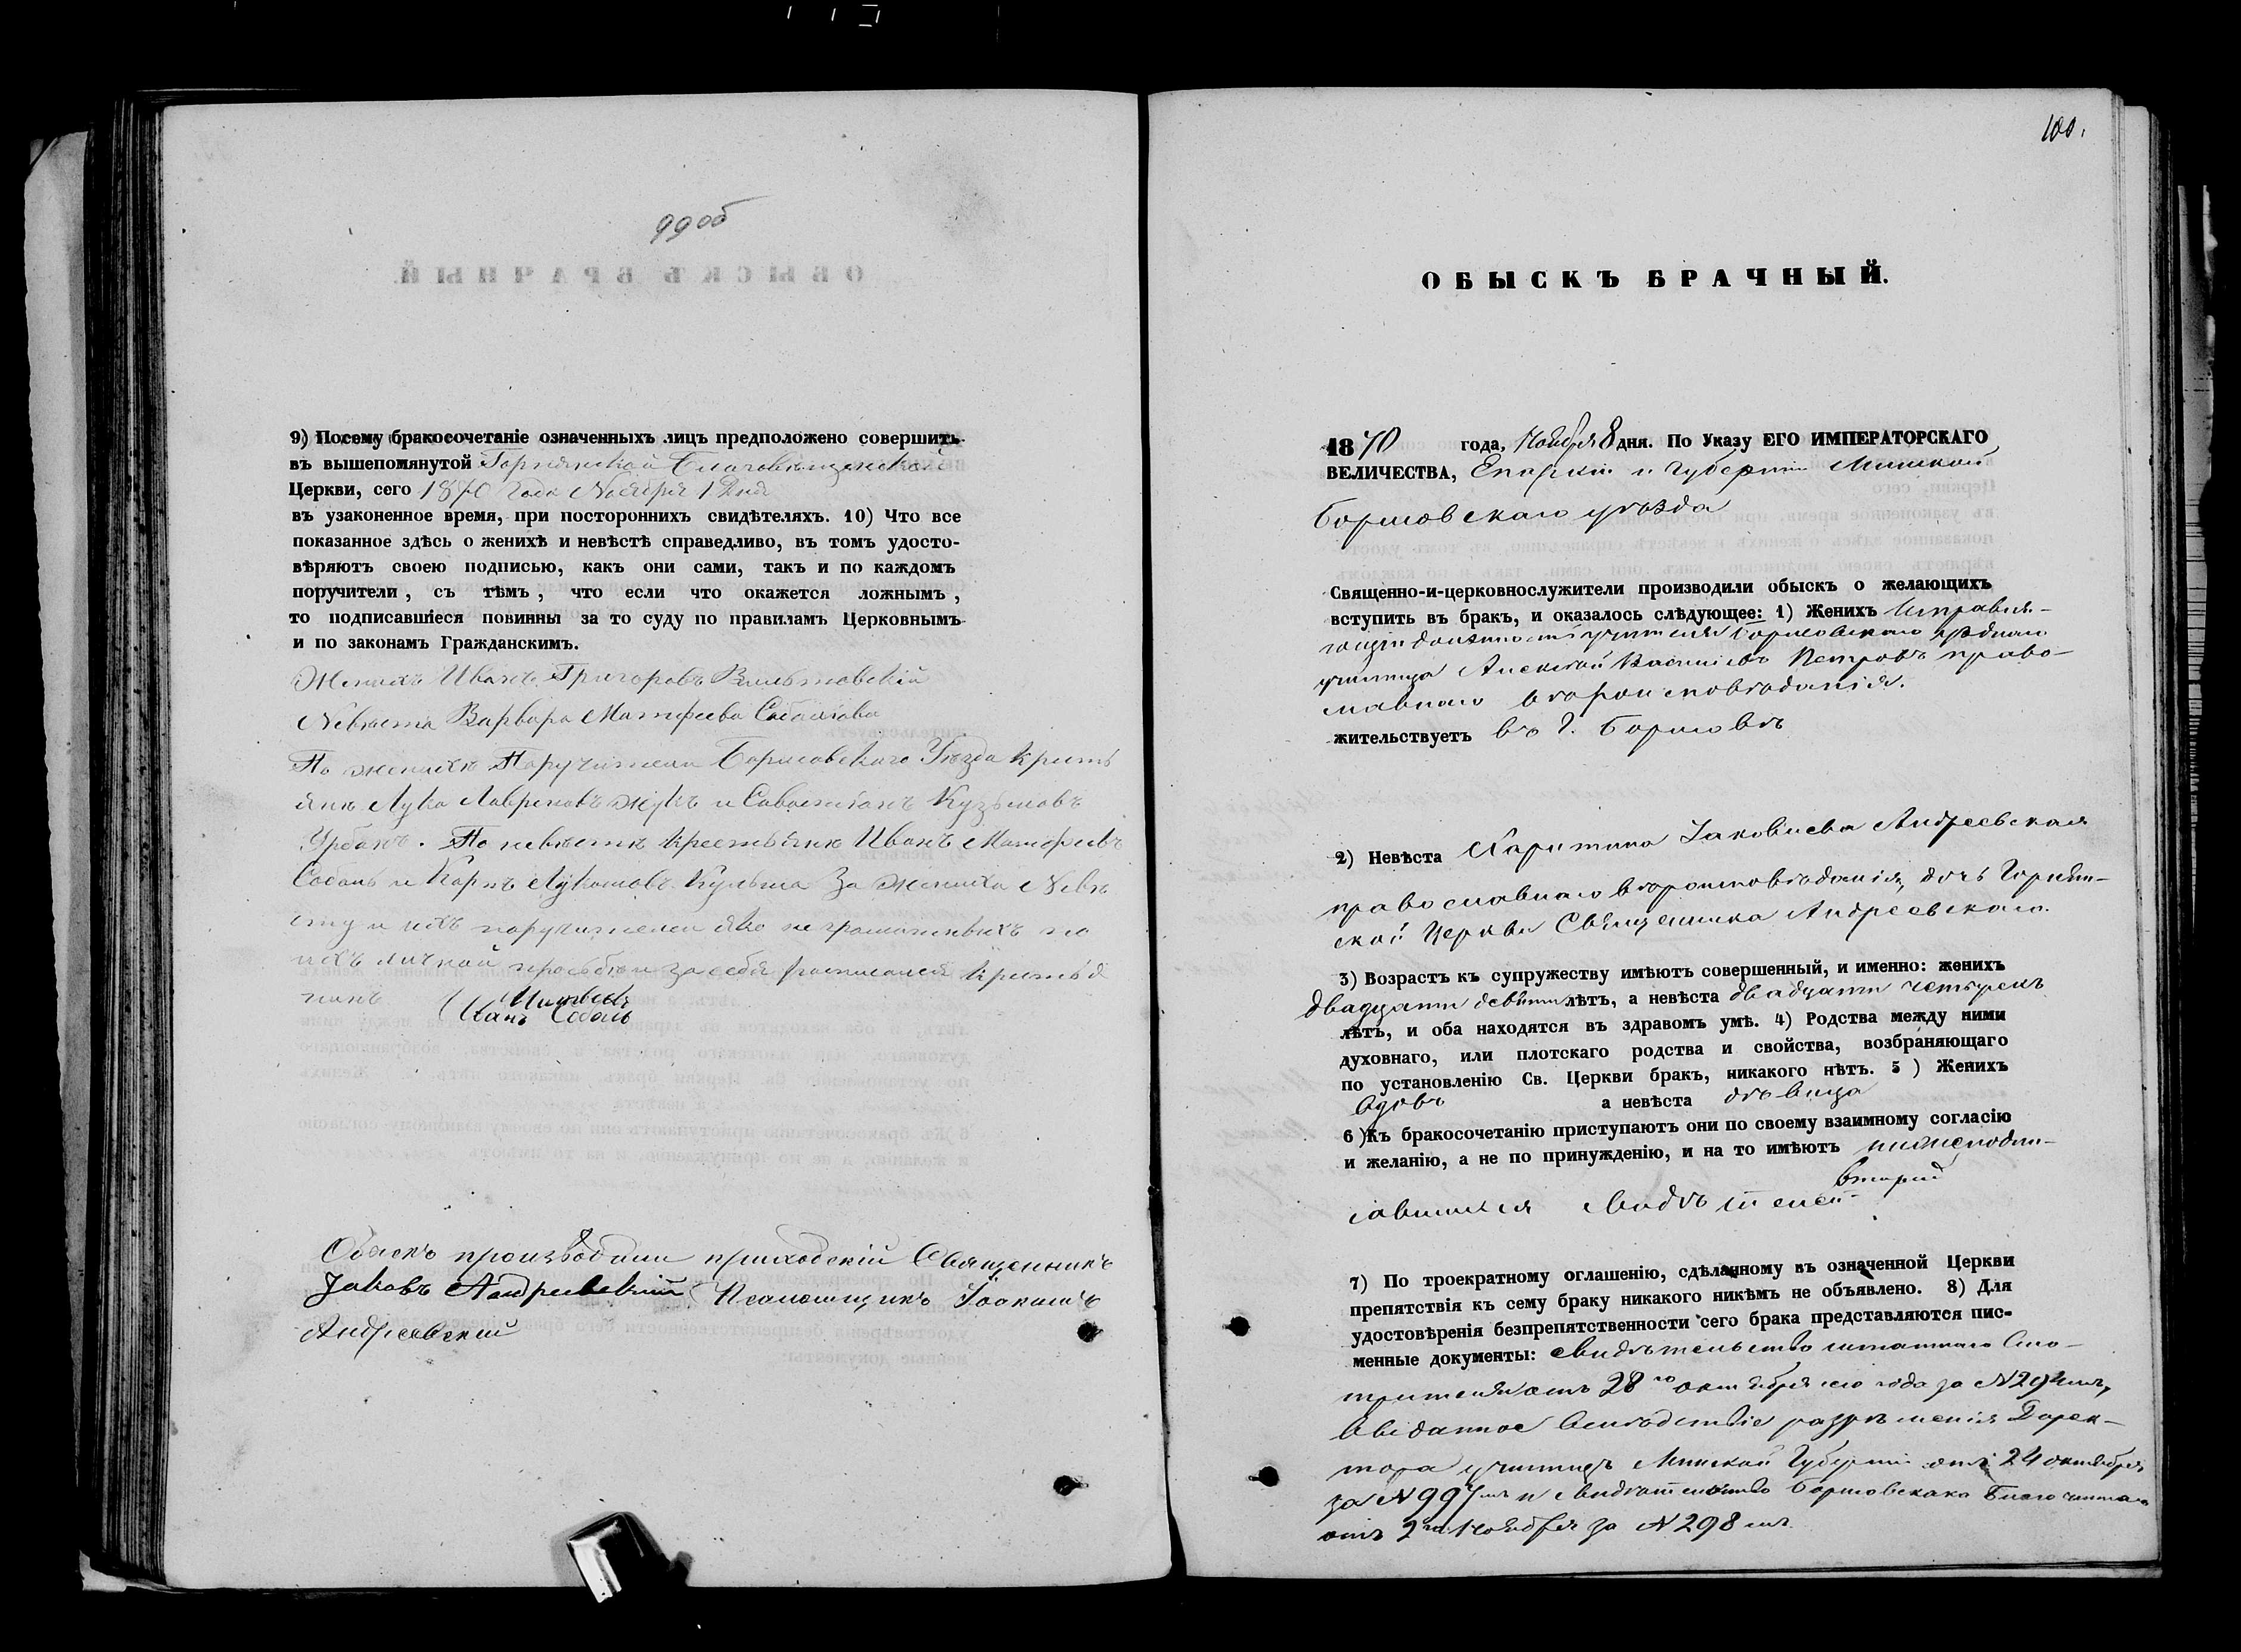 99об
9) Посему бракосочетаніе означенныхъ лицъ предположено совершить
въ вышепомянутой Горнянской Благовѣщенской
Церкви, сего 1870 года Ноября 1 дня
въ узаконенное время, при постороннихъ свидѣтеляхъ. 10) Что все
показанное здѣсь о женихѣ и невѣстѣ справедливо, въ томъ удосто-
вѣряютъ своею подписью, какъ они сами, такъ и по каждомъ
поручители, съ тѣмъ, что если что окажется ложнымъ,
то подписавшіеся повинны за то суду по правиламъ Церковнымъ
и по законамъ Гражданскимъ.
Женихъ Иванъ Григоровъ
Невѣста Варвара Матфеева Соболёва
По женихѣ Поручители Борисовскаго Уѣзда Кресть
янѣ Лука Лавреновъ Жукъ и Савастіанъ Кузьмовъ
Урбанъ. По невѣстѣ крестьянѣ Иванъ Матфеевъ
Соболь и Карпъ Лукашовъ Кульша За жениха Невѣ
сту и ихъ поручителей яко не грамотныхъ по
ихъ личной прозьбѣ и за себя росписался Крестья
нинъ Иванъ Матвеевъ Соболь
Обыскъ производили приходскій Священникъ
Іаковъ Андреевскій Псаломщикъ Іоакимъ
Андреевскій
100.
ОБЫСКЪ БРАЧНЫЙ.
1870 года, Ноября 8 дня. По Указу ЕГО ИМПЕРАТОРСКАГО
ВЕЛИЧЕСТВА, Епархіи и Губерніи Минской
Борисовскаго уѣзда
Священно-и-церковнослужители производили обыскъ о желающихъ
вступить въ брак, и оказалось слѣдующее: 1) Женихъ Исправля-
ющій должность учителя Борисовскаго уѣзднаго
училища Алексѣй Васильевъ Петровъ право-
славнаго вѣроисповѣданія.
жительствуетъ въ г. Борисовѣ
2) Невѣста Харитина Іаковлева Андреевская
православнаго вѣроисповѣданія, дочь Горнян-
ской Церкви Священника Андреевскаго.
3) Возрастъ къ супружеству имѣютъ совершенный, и именно: женихъ
двадцати девяти лѣтъ, а невѣста двадцати четырехъ
лѣтъ, и оба находятся въ здравомъ умѣ. 4) Родства между ними
духовнаго, или плотскаго родства и свойства, возбраняющаго
по установленію Св. Церкви бракъ, никакого нѣтъ. 5) Женихъ
вдовъ а невѣста дѣвица
6) Къ бракосочетанію приступаютъ они по своему взаимному согласію
и желанію, а не по принужденію, и на то имѣютъ нижеподпи-
савшихся свидѣтелей
7) По троекратному оглашенію, сдѣланному въ означенной Церкви
препятствія къ сему браку никакого никѣмъ не объявлено. 8) Для
удостовѣренія безпрепятственности сего брака представляются пис-
менные документы: свидѣтельство штатнаго Смо-
трителя отъ 28го октября сего года за N 294мъ,
выданное вслѣдствіе разрѣшенія Дирек-
тора училищъ Минской Губерніи отъ 24 октября
за N 997мъ и свидѣтельство Борисовскаго Благочиннаго
отъ 2го Ноября за N 298мъ.